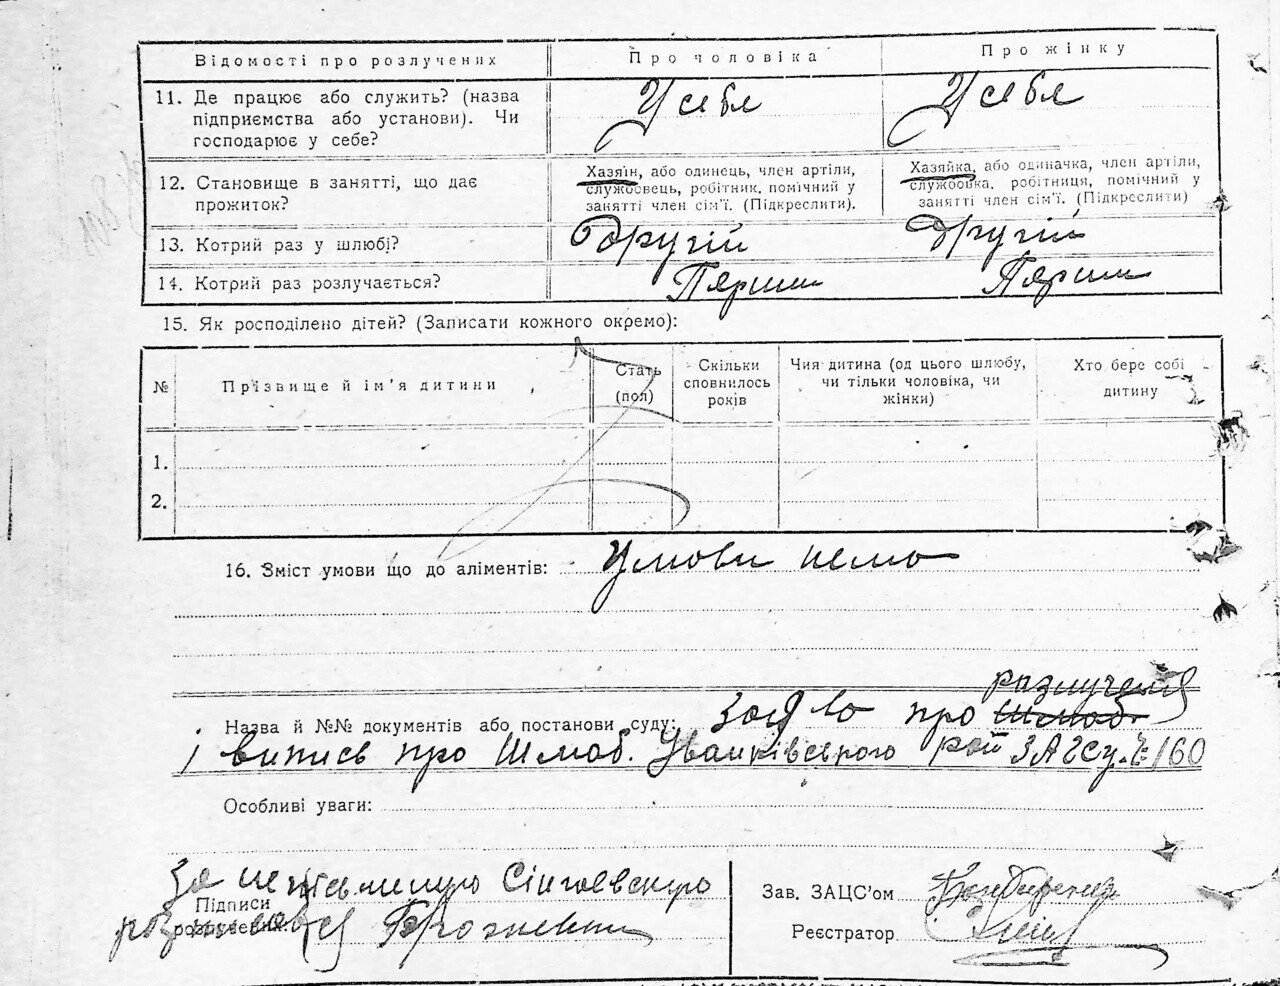 Відомості про розлучених
Про чоловіка
Про жінку
11. Де працює або служить? (назва
підприємства або установи). Чи
господарює у себе?
У себе
У себе
12. Становище в занятті, що дає
прожиток?
Хазяїн, або одинець, член артілі,
службовець, робітник, помічний у
занятті член сім'ї. (Підкреслити).
Хазяйка, або одиначка, член артілі,
службовка, робітниця, помічний у
занятті член сім'ї. (Підкреслити)
13. Котрий раз у шлюбі?
другій
другій
14. Котрий раз розлучається?
Перши
Перши
15. Як росподілено дітей? (Записати кожного окремо):
№
Прізвище й ім'я дитини
Стать
(пол)
Скільки
сповнилось
років
Чия дитина (од цього шлюбу,
чи тільки чоловіка, чи
жінки)
Хто бере собі
дитину
1.
2.
16. Зміст умови що до аліментів: Умови нема
розлученя
Назва й №№ документів або постанови суду: Заява про шлюб
і випись про Шлюб. Іванківського рай ЗАГСу № 160
Особливі уваги:
За неписьменну Сінгаевскую
Підписи
розлучених:
Зав. ЗАЦС'ом
Реєстратор